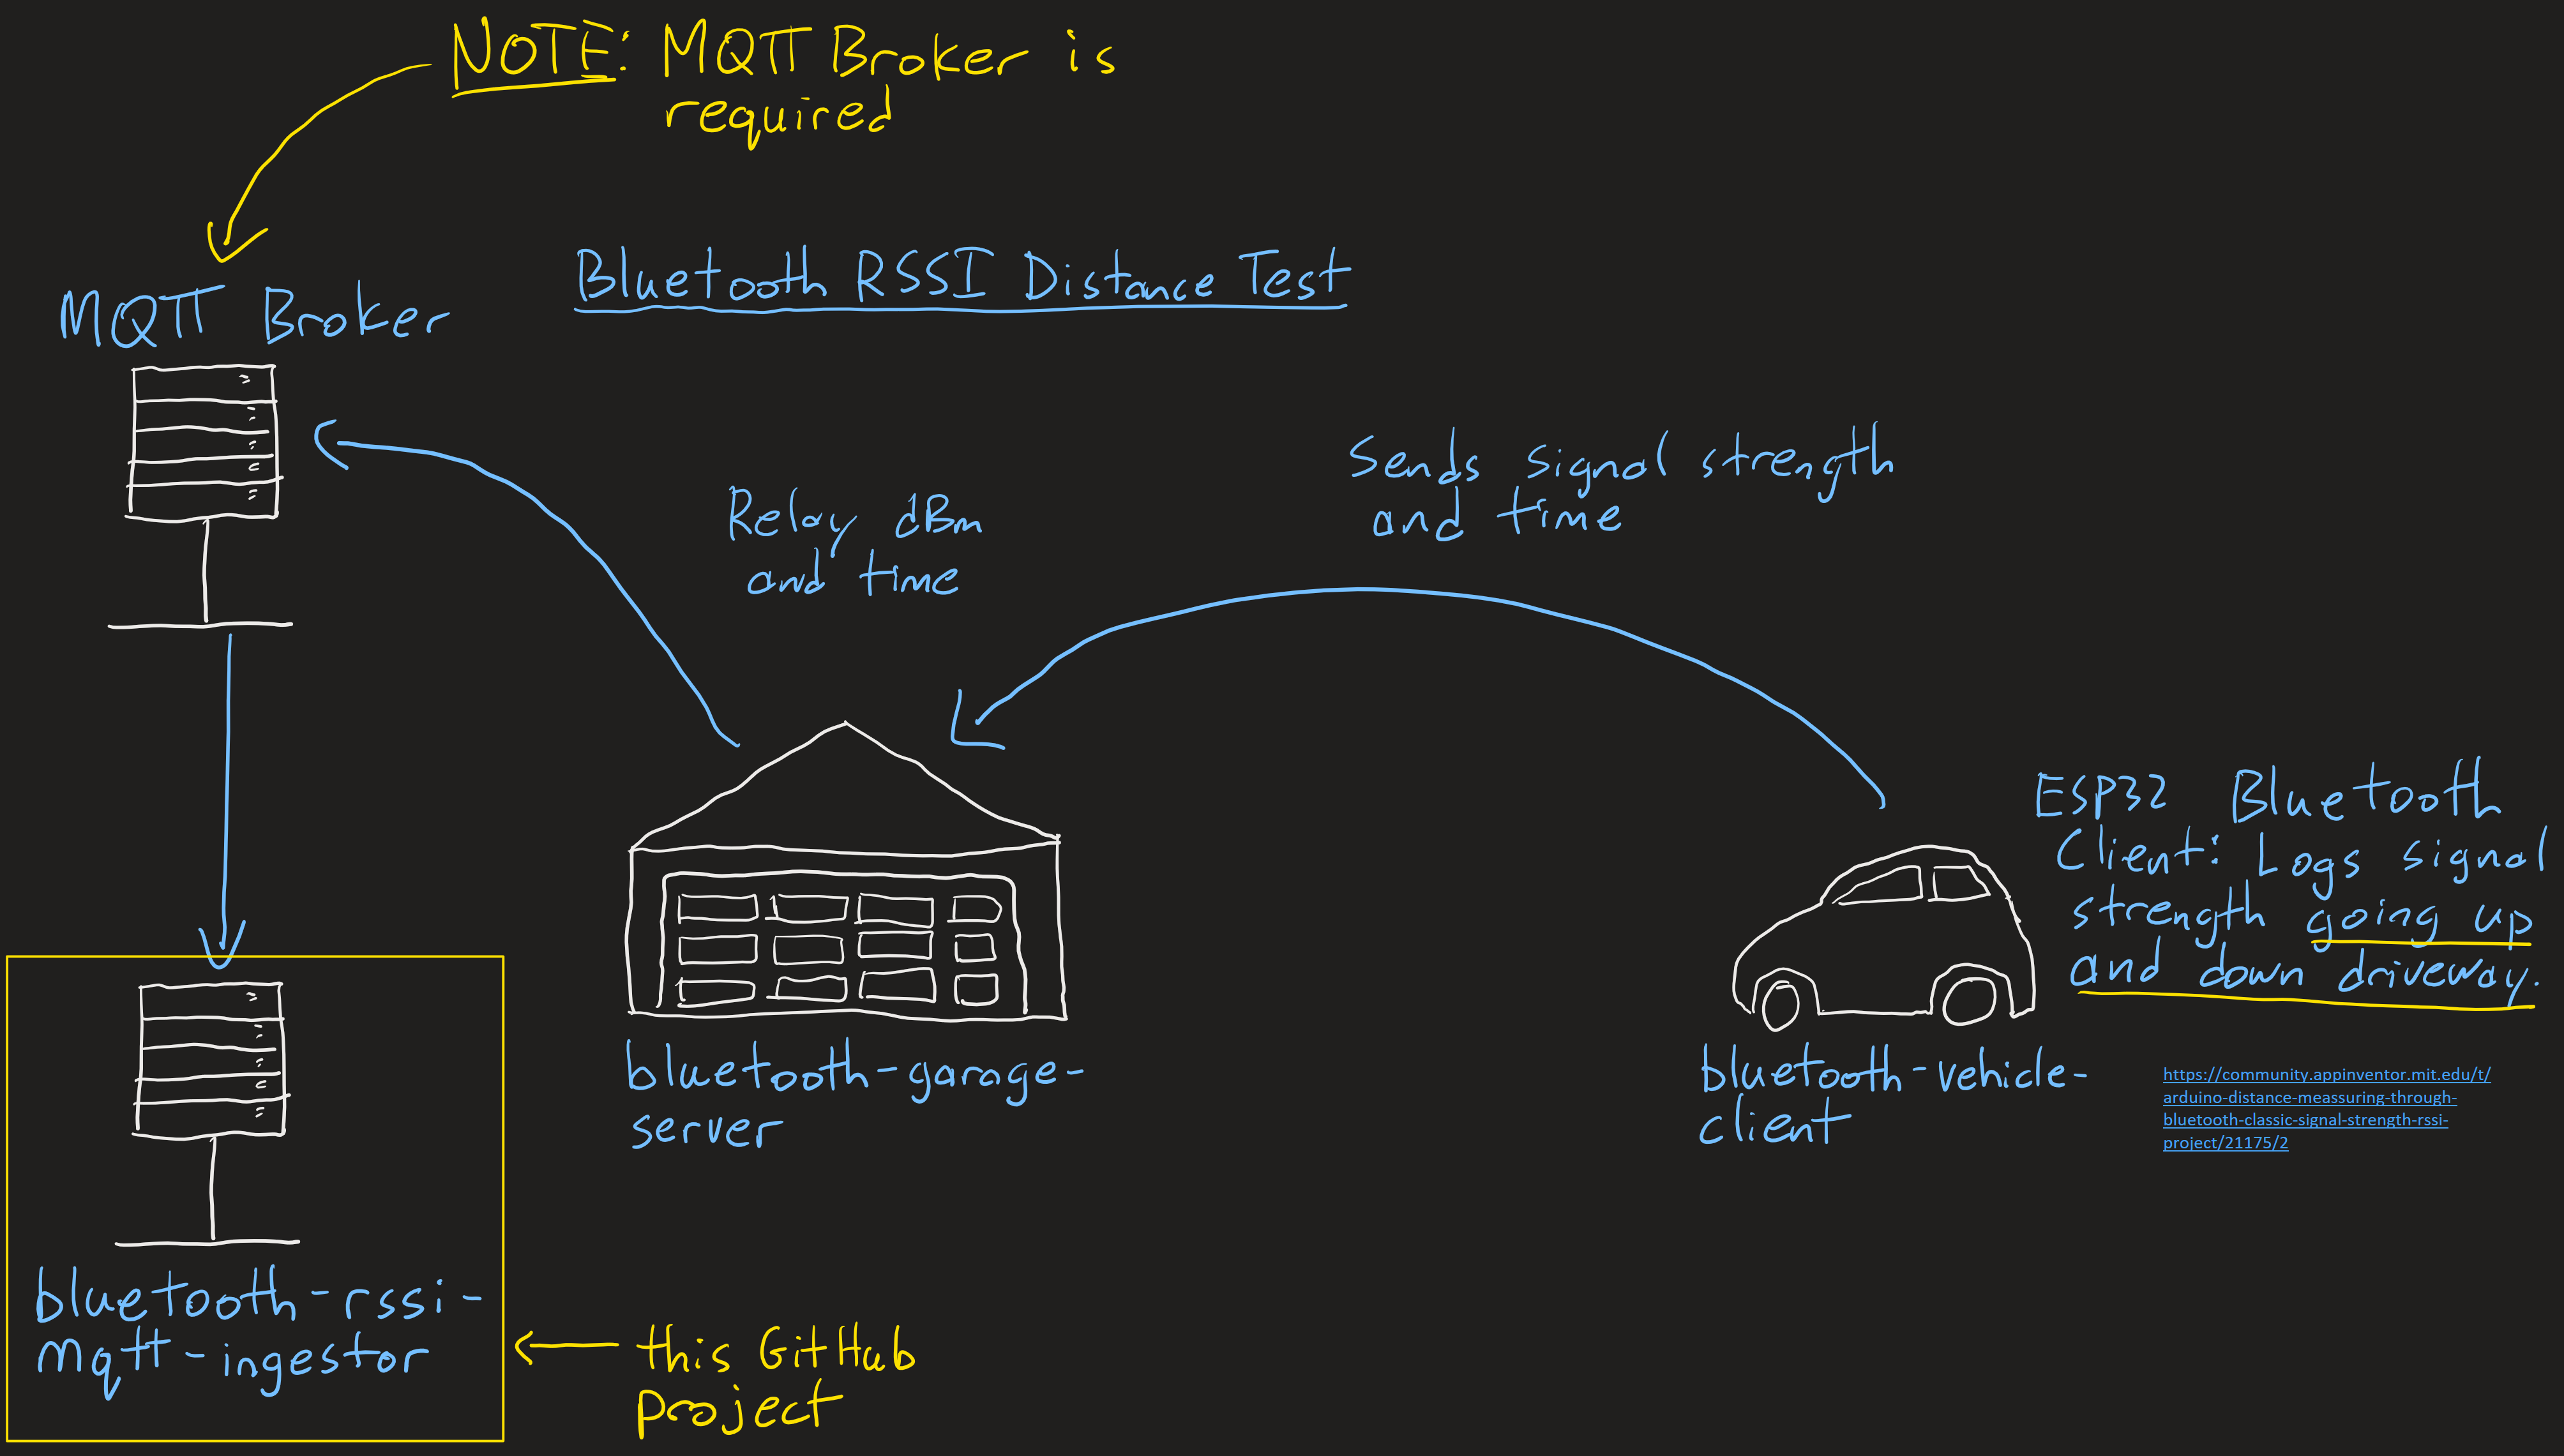 NOTE: MQTT Broker is
required
Bluetooth RSSI Distance Test
MQTT Broker
Sends signal strength
and time
Relay dBm
and time
ESP32 Bluetooth
Client: Logs signal
strength going up
and down driveway.
bluetooth-garage-
server
bluetooth-vehicle-
client
https://community.appinventor.mit.edu/t/
arduino-distance-meassuring-through-
bluetooth-classic-signal-strength-rssi-
project/21175/2
bluetooth-rssi-
mqtt-ingestor
this GitHub
project